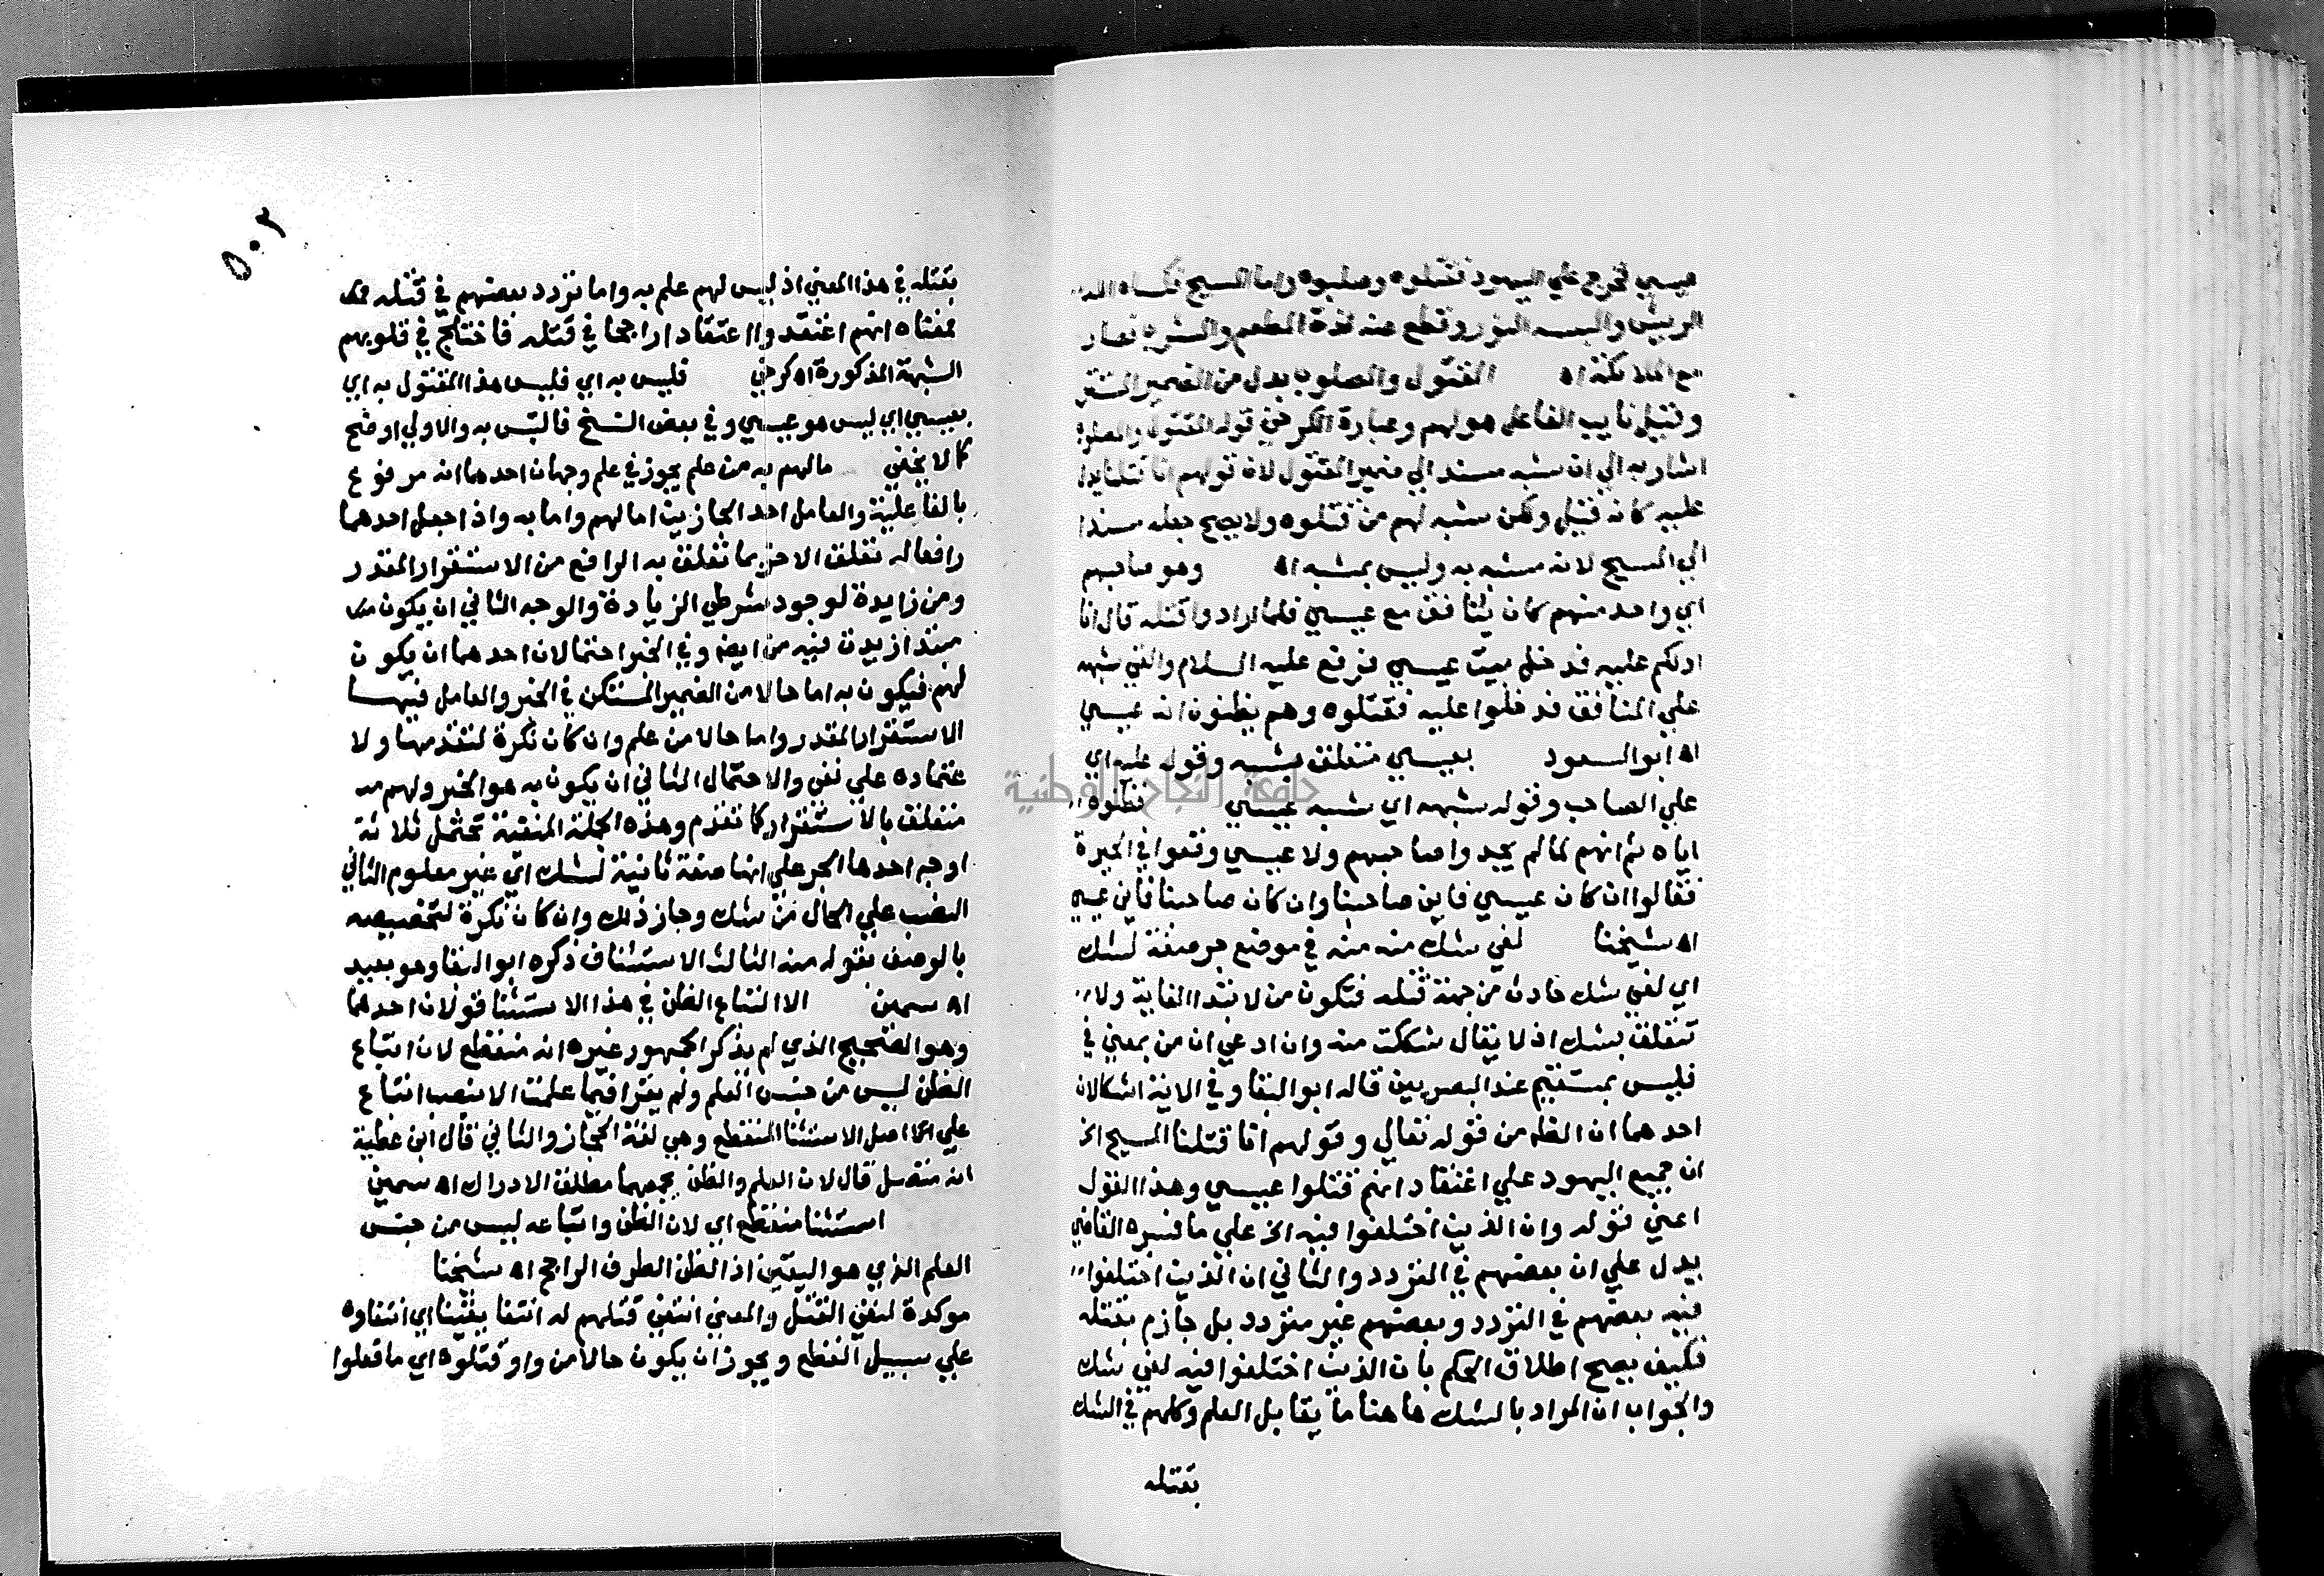 عيسي فخرج علي اليهود فقتلوه وصلبوه واما المسيح فكساه الله
الريش والبسه النور وقطع عنه لذة المطعم والمشرب فصار
مع الملائكة اه المقتول والمصلوب بدل من الضمير المستتر
وقيل نايب الفاعل هو لهم وعبارة الكرخي قوله المقتول والمصلوب
اشار به الي ان شبه مسند الي ضمير المقتول لان قولهم انا قتلنا يدل
عليه كانه قيل ولكن شبه لهم من قتلوه ولا يصح جعله مسندا
الي المسيح لانه مشبه به وليس بمشبه اه وهو صاحبهم
اي واحد منهم كان ينافق مع عيسي فلما ارادوا قتله قال انا
ادلكم عليه فدخل بيت عيسي فرفع عليه السلام والقي شبهه
علي المنافق فدخلوا عليه فقتلوه وهم يظنون انه عيسي
اه ابو السعود بعيسي متعلق بشبه وقوله عليه اي
علي الصاحب وقوله شبهه اي شبه عيسي فظنوه
اياه ثم انهم لما لم يجدوا صاحبهم ولا عيسي وقعوا في الحيرة
فقالوا ان كان عيسي فاين صاحبنا وان كان صاحبنا فاين عيسي
اه شيخنا لفي شك منه منه في موضع جر صفة لشك
اي لفي شك حادث من جهة قتله فتكون من لابتدا الغاية ولا
تتعلق بشك اذ لا يقال شككت منه وان ادعي ان من بمعني في
فليس بمستقيم عند البصريين قاله ابو البقا وفي الاية اشكالان
احدهما ان الظاهر من قوله تعالي وقولهم انا قتلنا المسيح الخ
ان جميع اليهود علي اعتقاد انهم قتلوا عيسي وهذا القول
اعني قوله وان الذين اختلفوا فيه الخ علي ما فسره القاضي
يدل علي ان بعضهم في التردد والثاني ان الذين اختلفوا
فيه بعضهم في التردد وبعضهم غير متردد بل جازم بقتله
فكيف يصح اطلاق الحكم بان الذين اختلفوا فيه لفي شك
والجواب ان المراد بالشك هاهنا ما يقابل العلم وكلهم في الشك
بقتله
٥٠٣
بقتله في هذا المعني اذ ليس لهم علم به واما تردد بعضهم في قتله
فمعناه انهم اعتقدوا اعتقادا راجحا في قتله فاختلج في قلوبهم
الشبهة المذكورة اه كرخي فليس به اي فليس هذا المقتول به اي
بعيسي اي ليس هو عيسي وفي بعض النسخ فالتبس به والاولي اوضح
كما لا يخفي ما لهم به من علم يجوز في علم وجهان احدهما انه مرفوع
بالفاعلية والعامل احد الجارين اما لهم واما به واذا جعل احدهما
رافعا له تعلق الاخر بما تعلق به الرافع من الاستقرار المقدر
ومن زايدة لوجود شرطي الزيادة والوجه الثاني ان يكون
مبتدا زيدت فيه من ايضا وفي الخبر احتمالان احدهما ان يكون
لهم فيكون به اما حالا من الضمير المستكن في الخبر والعامل فيها
الاستقرار المقدر واما حالا من علم وان كان نكرة لتقدمها ولا
عتماده علي نفي والاحتمال الثاني ان يكون به هو الخبر ولهم
متعلق بالاستقرار كما تقدم وهذه الجملة المنفية تحتمل ثلاثة
اوجه احدها الجر علي انها صفة ثانية لشك اي غير معلوم الثاني
النصب علي الحال من شك وجاز ذلك وان كان نكرة لتخصيصه
بالوصف بقوله منه الثالث الاستئناف ذكره ابو البقا وهو بعيد
اه سمين الا اتباع الظن في هذا الاستثنا قولان احدهما
وهو الصحيح الذي لم يذكر الجمهور غيره انه منقطع لان اتباع
الظن ليس من جنس العلم ولم يقرا فيما علمت الا بنصب اتباع
علي اصل الاستثنا المنقطع وهي لغة الحجاز والثاني قال ابن عطية
انه متصل قال لان العلم والظن يجمعهما مطلق الادراك اه سمين
استثنا منقطع اي لان الظن واتباعه ليس من جنس
العلم الذي هو اليقين اذ الظن الطرف الراجح اه شيخنا
موكدة لنفي القتل والمعني انتفي قتلهم له انتفا يقينا اي انتفاوه
علي سبيل القطع ويجوز ان يكون حالا من واو قتلوه اي ما فعلوا
جامعة النجاح الوطنية